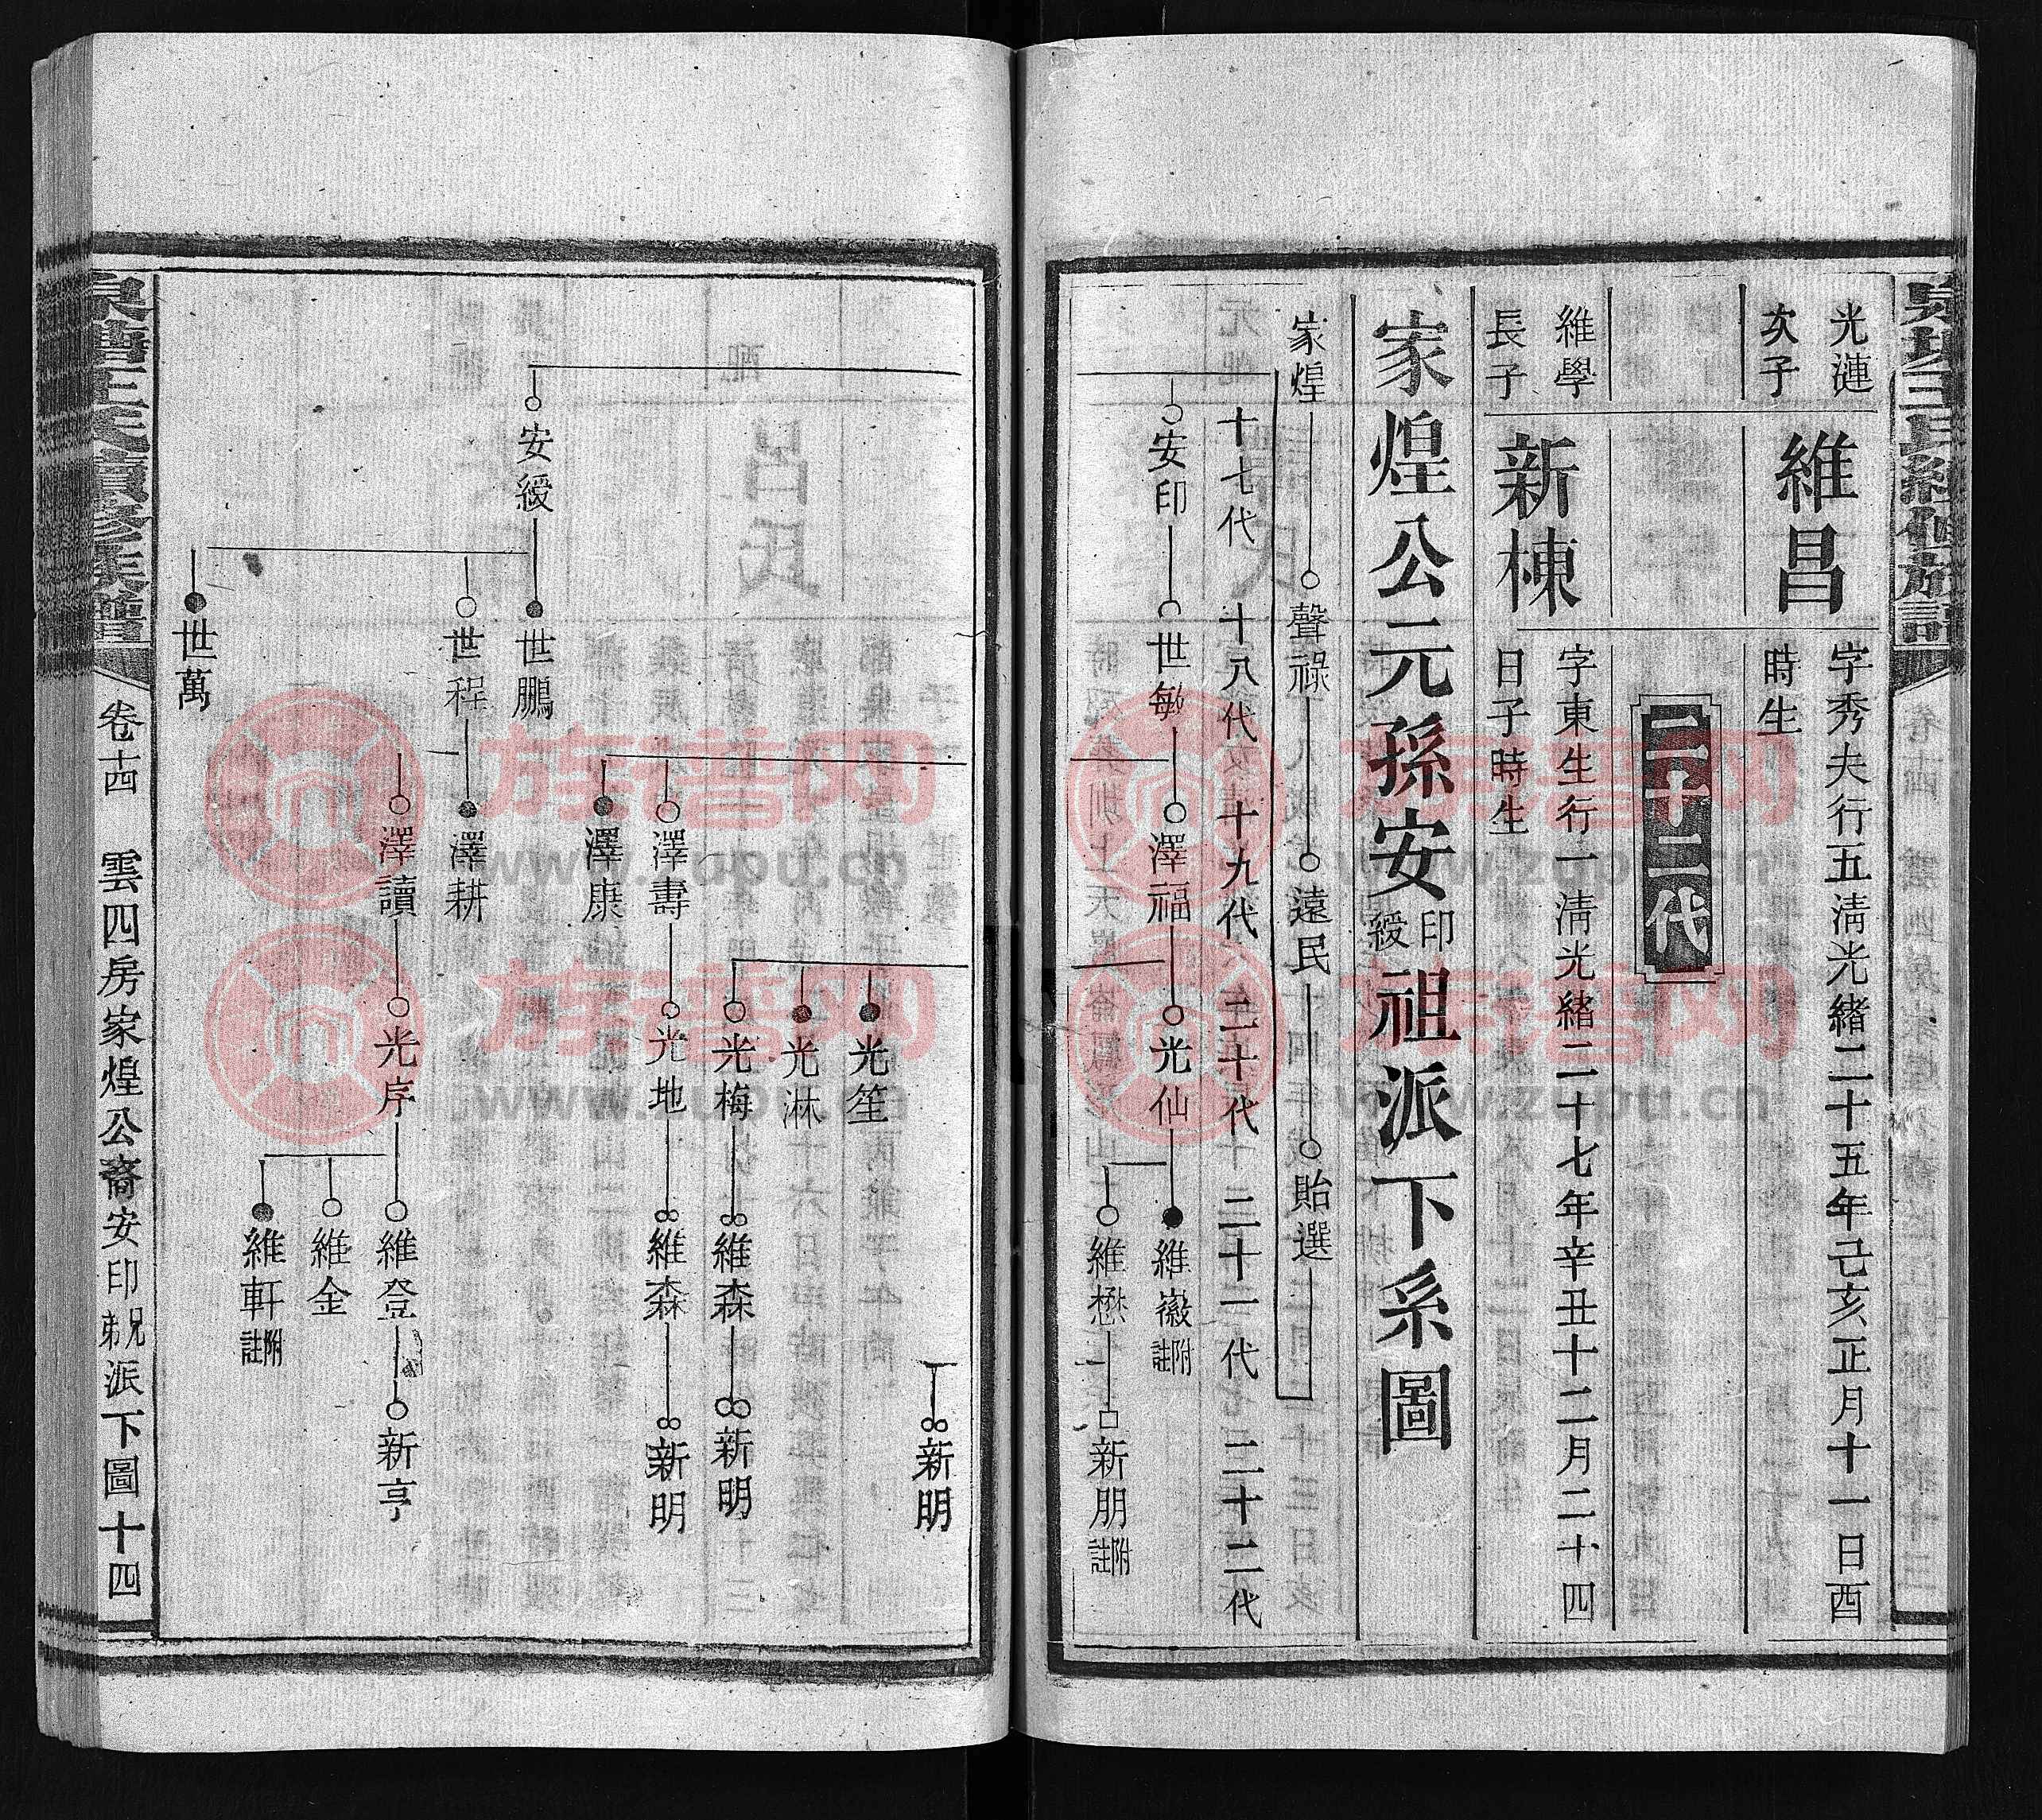 光漣
次子
維昌
字秀夫行五清光緒二十五年己亥正月十一日酉
時生
二十二代
維學
長子
新棟
字東生行一清光緒二十七年辛丑十二月二十四
日子時生
家煌公元孫安印綬祖派下系圖
家煌 聲祿 遠民 貽選
十七代 十八代 十九代 二十代 二十一代 二十二代
安印 世敏 澤福 光仙 維嶶附註
維懋 新朋附註
新明
光笙
光淋
光梅 維森 新明
澤壽 光地 維森 新明
澤康
安綬 世鵬
世程 澤耕
澤讀 光序 維登 新亨
維金
維軒附註
世萬
王氏續修族譜
卷十四 雲四房家煌公裔安印兄弟派下圖十四
族譜网
www.zupu.cn
族譜网
www.zupu.cn
族譜网
www.zupu.cn
族譜网
www.zupu.cn